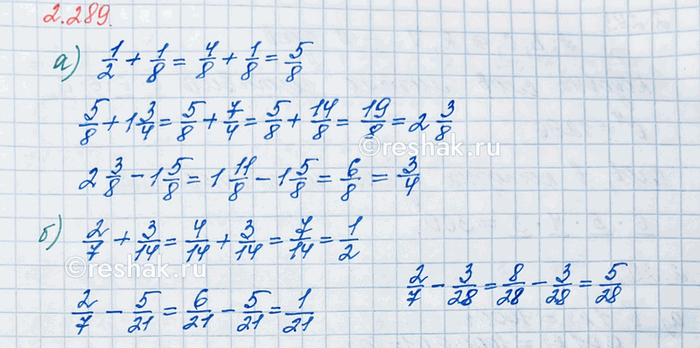 2.289.
а) 1/2 + 1/8 = 4/8 + 1/8 = 5/8
5/8 + 1 3/4 = 5/8 + 7/4 = 5/8 + 14/8 = 19/8 = 2 3/8
©reshak.ru
2 3/8 - 1 5/8 = 1 11/8 - 1 5/8 = 6/8 = 3/4
б) 2/7 + 3/14 = 4/14 + 3/14 = 7/14 = 1/2
©reshak.ru
2/7 - 3/28 = 8/28 - 3/28 = 5/28
2/7 - 5/21 = 6/21 - 5/21 = 1/21